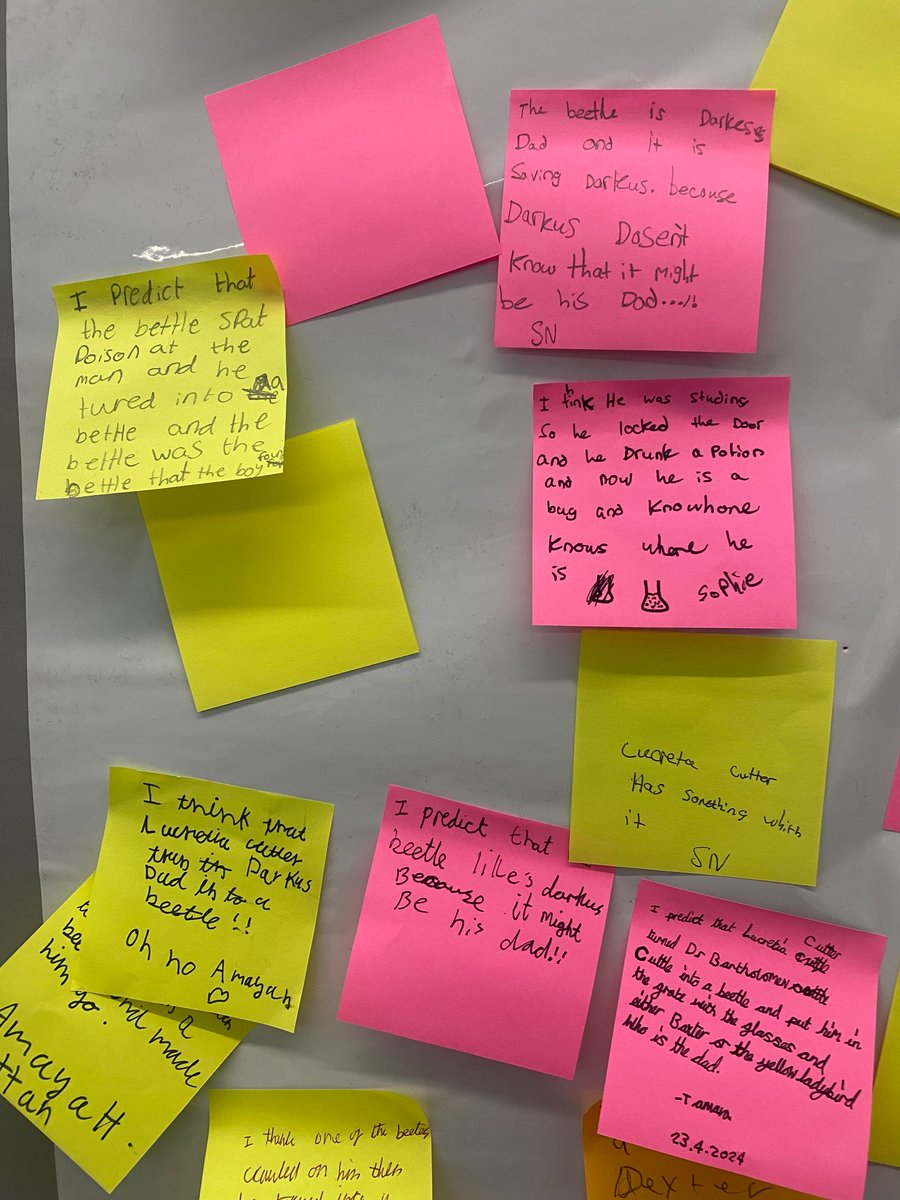 The beetle is Darkes's
Dad and it is
Saving Darkus. because
Darkus Dosen't
Know that it might
be his Dad....!!
SN
I Predict that
the bettle SPat
Poison at the
man and he
tured into a
bettle and the
bettle was the
bettle that the boy found
I think He was studing
So he locked the Door
and he Drunk a Potion
and now he is a
bug and Knowhone
Knows where he
is
Sophie
Lucreta cutter
Has something whith
it
SN
I think that
Lucretia cutter
Darkus
Dad in to a
beetle !!
Oh no Amayah
him
a
and made
Amayah
I predict that
beetle lille's darkus
Because it might
Be his dad!!
I predict that Lucretia Cutter
turned Dr Bartholomew
Cuttle into a beetle and put him in
the grate with the glasses and
either Baxter or the yellow ladybird
who is the dad.
-Tamara
23.4.2024
I think one of the beetles
crawled on him then
he turned into a
Dexter